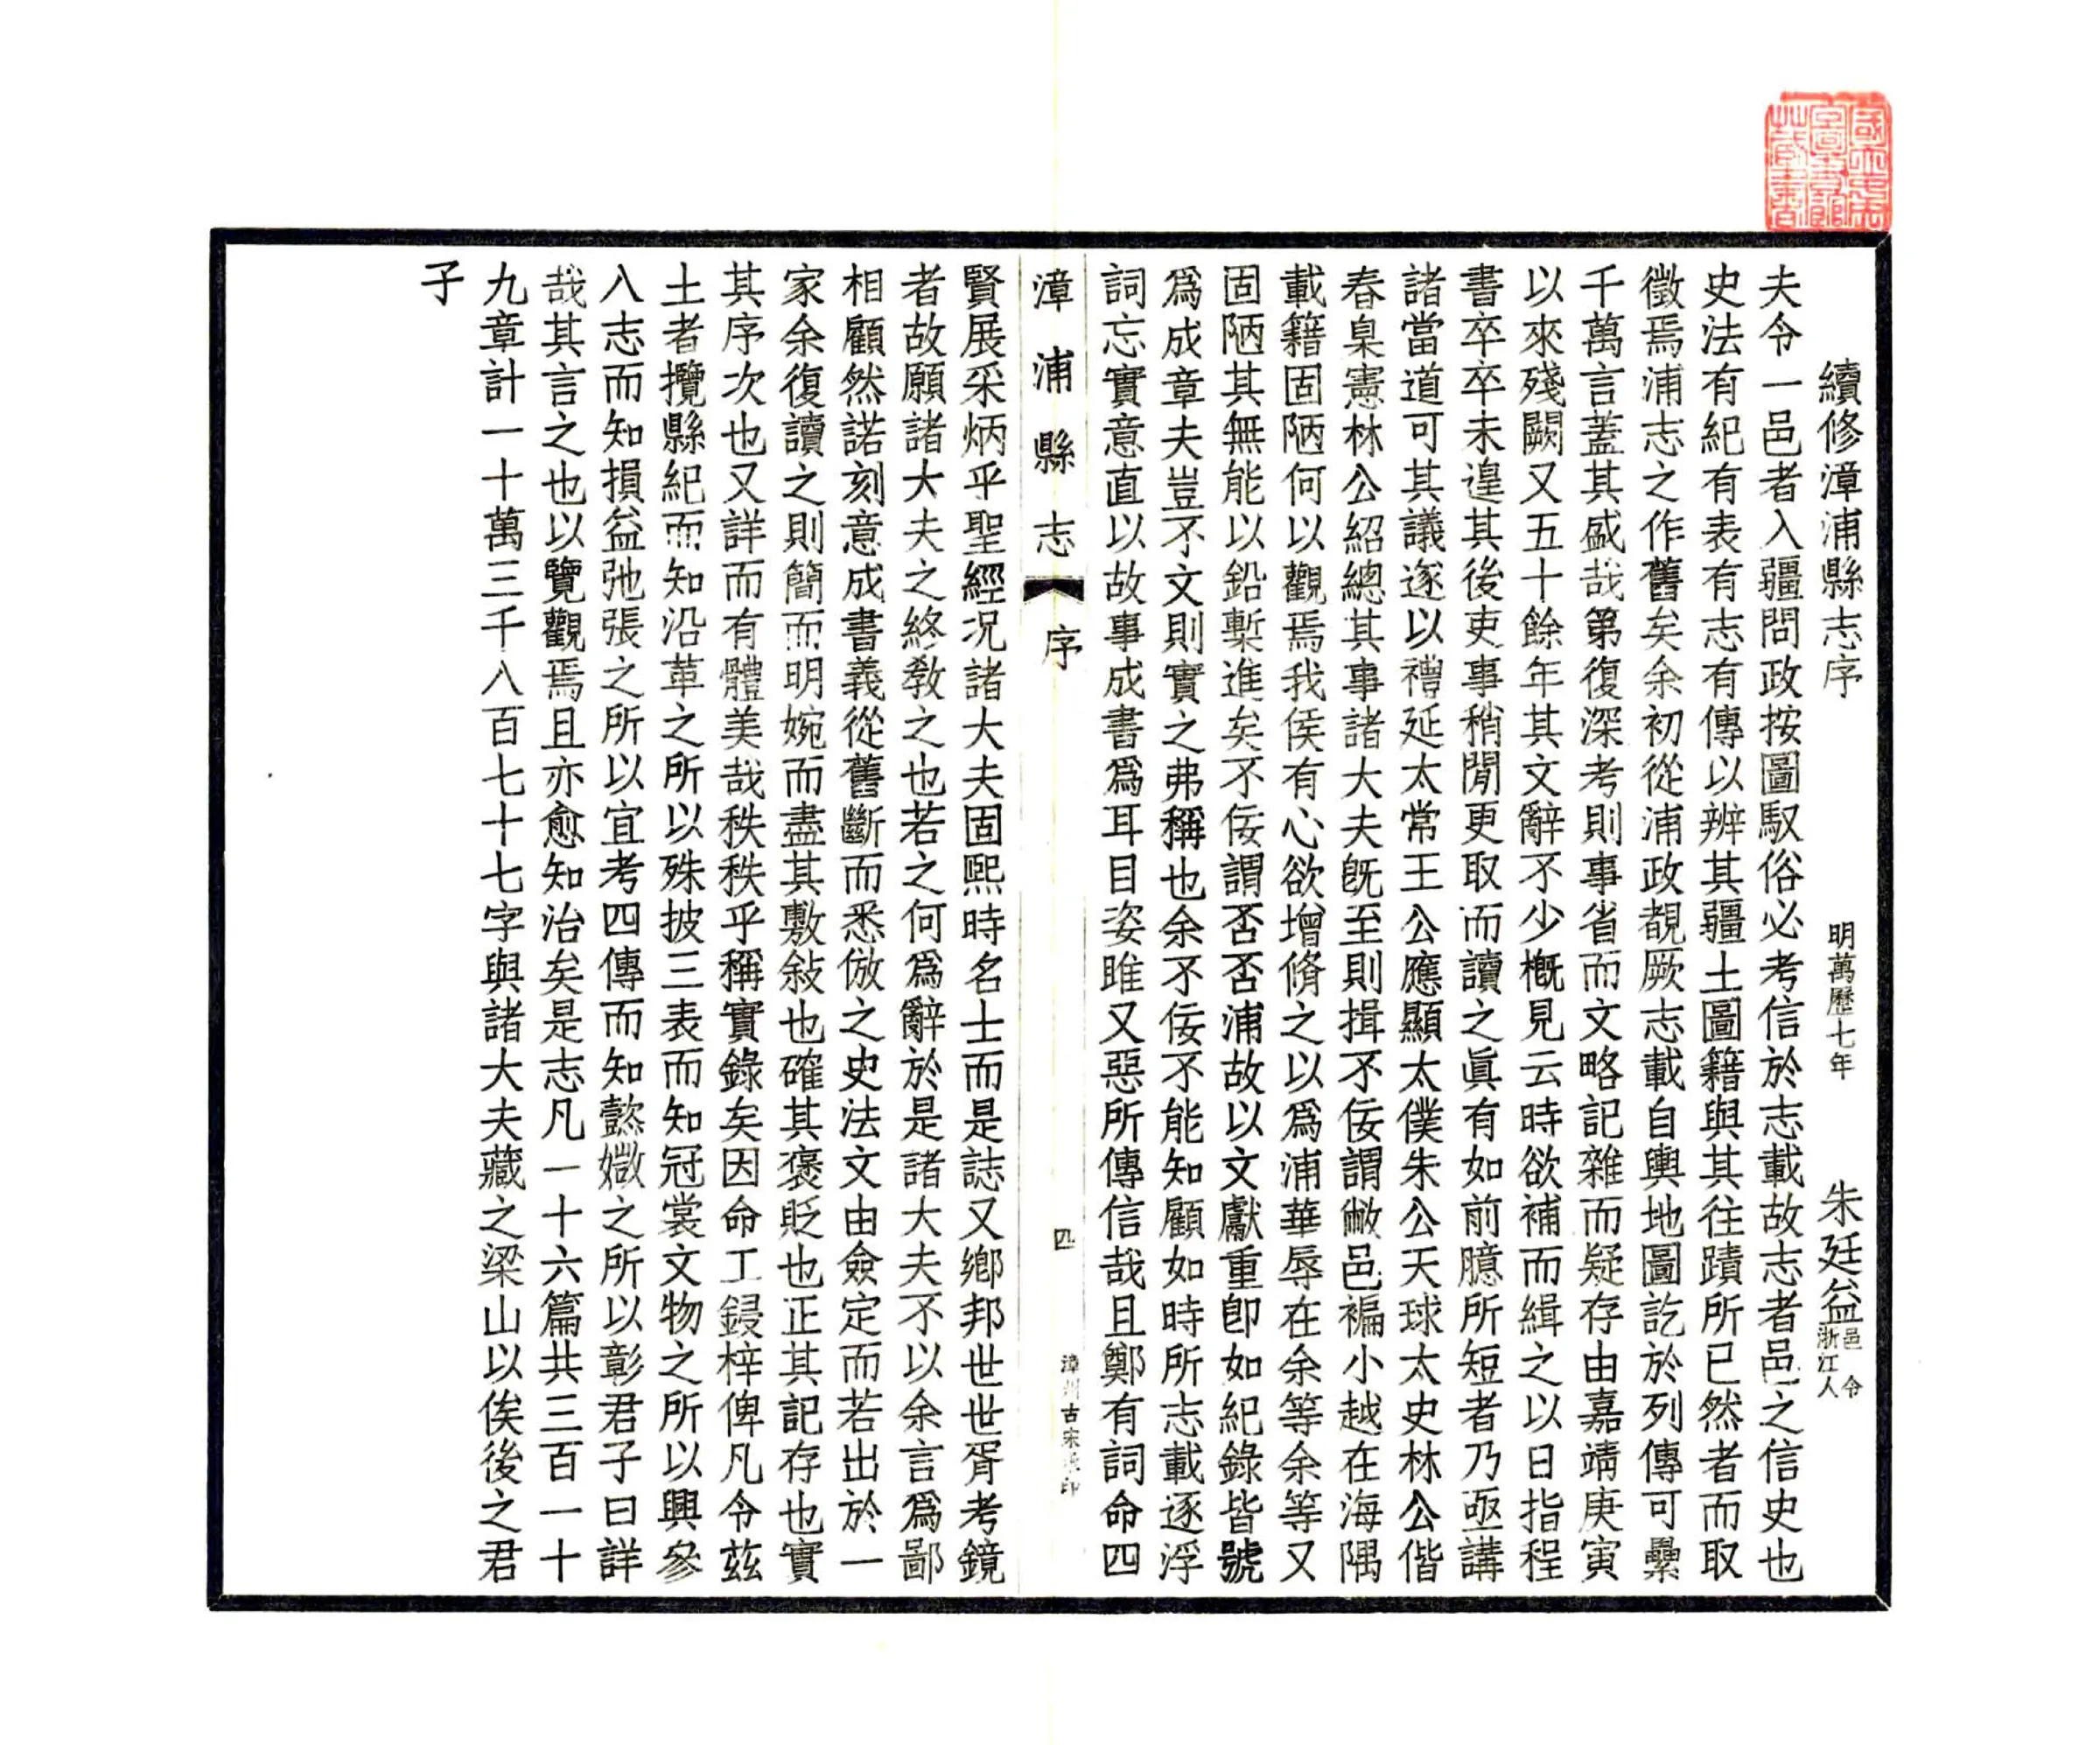 續修漳浦縣志序 明萬歷七年 朱廷益 邑令 浙江人
夫令一邑者入疆問政按圖馭俗必考信於志載故志者邑之信史也
史法有紀有表有志有傳以辨其疆土圖籍與其往蹟所已然者而取
徵焉浦志之作舊矣余初從浦政覩厥志載自輿地圖訖於列傳可纍
千萬言蓋其盛哉第復深考則事省而文略記雜而疑存由嘉靖庚寅
以來殘闕又五十餘年其文辭不少槪見云時欲補而緝之以日指程
書卒卒未遑其後吏事稍閒更取而讀之眞有如前臆所短者乃亟講
諸當道可其議逐以禮延太常王公應顯太僕朱公天球太史林公偕
春臬憲林公紹總其事諸大夫旣至則揖不佞謂敝邑褊小越在海隅
載籍固陋何以觀焉我侯有心欲增脩之以爲浦華辱在余等余等又
固陋其無能以鉛槧進矣不佞謂否否浦故以文獻重卽如紀錄皆號
爲成章夫豈不文則實之弗稱也余不佞不能知顧如時所志載逐浮
詞忘實意直以故事成書爲耳目姿雎又惡所傳信哉且鄭有詞命四
漳浦縣志 序 四
賢展采炳乎聖經况諸大夫固熙時名士而是誌又鄉邦世世胥考鏡
者故願諸大夫之終敎之也若之何爲辭於是諸大夫不以余言爲鄙
相顧然諾刻意成書義從舊斷而悉倣之史法文由僉定而若出於一
家余復讀之則簡而明婉而盡其敷敍也確其褒貶也正其記存也實
其序次也又詳而有體美哉秩秩乎稱實錄矣因命工鋟梓俾凡令茲
土者攬縣紀而知沿革之所以殊披三表而知冠裳文物之所以興參
入志而知損益弛張之所以宜考四傳而知懿媺之所以彰君子曰詳
哉其言之也以覽觀焉且亦愈知治矣是志凡一十六篇共三百一十
九章計一十萬三千八百七十七字與諸大夫藏之梁山以俟後之君
子